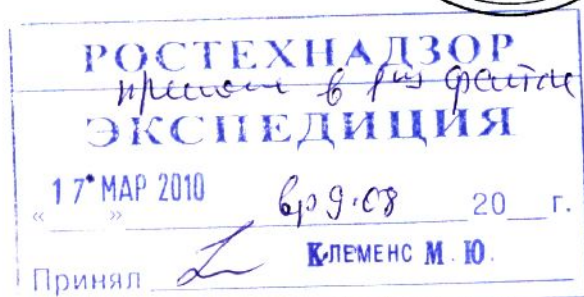 РОСТЕХНАДЗОР
в
ЭКСПЕДИЦИЯ
17 МАР 2010 вр 9.08
« » 20 г.
Принял КЛЕМЕНС М. Ю.